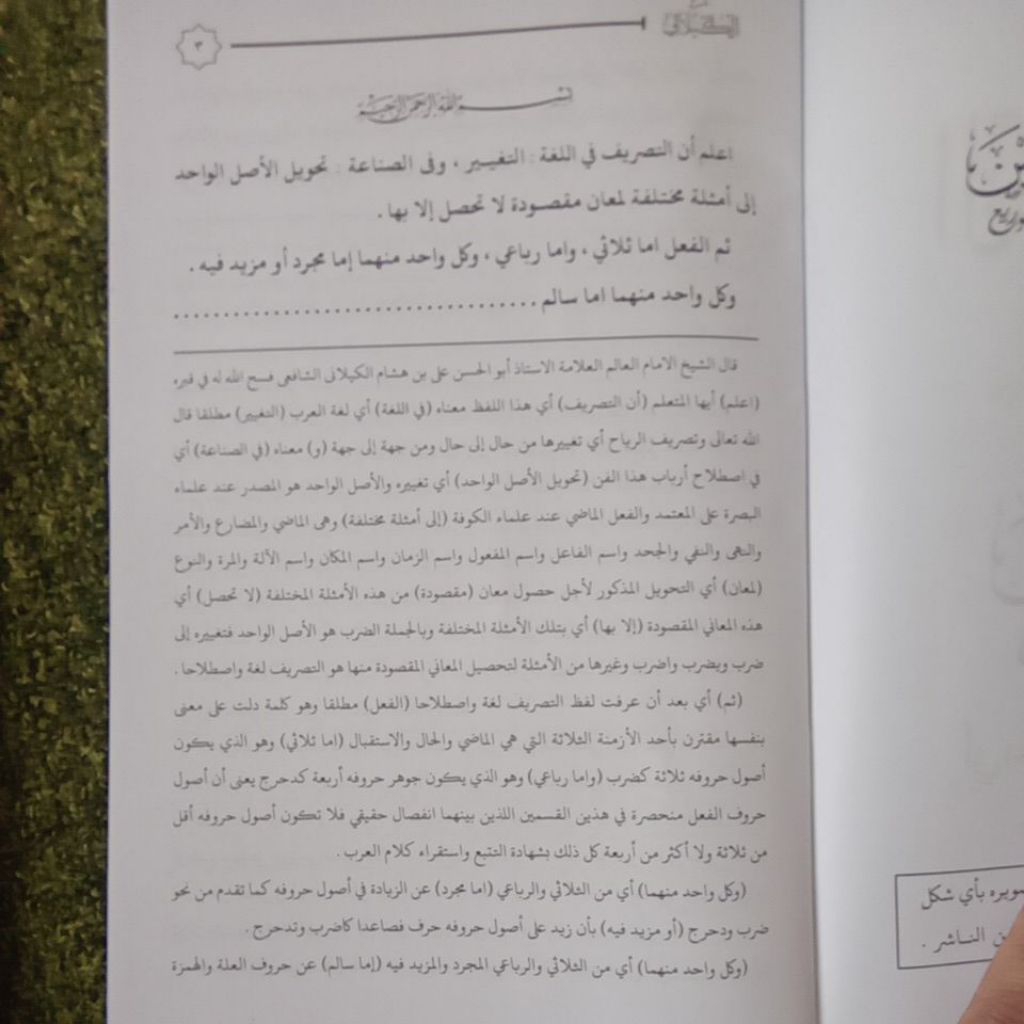 الكيلاني
٣
بسم الله الرحمن الرحيم
اعلم أن التصريف في اللغة : التغيير ، وفى الصناعة : تحويل الأصل الواحد
إلى أمثلة مختلفة لمعان مقصودة لا تحصل إلا بها .
ثم الفعل اما ثلاثي ، واما رباعي ، وكل واحد منهما إما مجرد أو مزيد فيه .
وكل واحد منهما اما سالم ...................................
قال الشيخ الامام العالم العلامة الاستاذ أبو الحسن على بن هشام الكيلانى الشافعى فسح الله له في قبره
(اعلم) أيها المتعلم (أن التصريف) أي هذا اللفظ معناه (في اللغة) أي لغة العرب (التغيير) مطلقا قال
الله تعالى وتصريف الرياح أي تغييرها من حال إلى حال ومن جهة إلى جهة (و) معناه (في الصناعة) أي
في اصطلاح أرباب هذا الفن (تحويل الأصل الواحد) أي تغييره والأصل الواحد هو المصدر عند علماء
البصرة على المعتمد والفعل الماضي عند علماء الكوفة (إلى أمثلة مختلفة) وهى الماضي والمضارع والأمر
والنهى والنفي والجحد واسم الفاعل واسم المفعول واسم الزمان واسم المكان واسم الآلة والمرة والنوع
(لمعان) أي التحويل المذكور لأجل حصول معان (مقصودة) من هذه الأمثلة المختلفة (لا تحصل) أي
هذه المعاني المقصودة (إلا بها) أي بتلك الأمثلة المختلفة وبالجملة الضرب هو الأصل الواحد فتغييره إلى
ضرب ويضرب واضرب وغيرها من الأمثلة لتحصيل المعاني المقصودة منها هو التصريف لغة واصطلاحا .
(ثم) أي بعد أن عرفت لفظ التصريف لغة واصطلاحا (الفعل) مطلقا وهو كلمة دلت على معنى
بنفسها مقترن بأحد الأزمنة الثلاثة التي هي الماضي والحال والاستقبال (اما ثلاثي) وهو الذي يكون
أصول حروفه ثلاثة كضرب (واما رباعي) وهو الذي يكون جوهر حروفه أربعة كدحرج يعنى أن أصول
حروف الفعل منحصرة في هذين القسمين اللذين بينهما انفصال حقيقي فلا تكون أصول حروفه أقل
من ثلاثة ولا أكثر من أربعة كل ذلك بشهادة التتبع واستقراء كلام العرب .
(وكل واحد منهما) أي من الثلاثي والرباعي (اما مجرد) عن الزيادة في أصول حروفه كما تقدم من نحو
ضرب ودحرج (أو مزيد فيه) بأن زيد على أصول حروفه حرف فصاعدا كاضرب وتدحرج .
(وكل واحد منهما) أي من الثلاثي والرباعي المجرد والمزيد فيه (إما سالم) عن حروف العلة والهمزة
بأي شكل
الناشر .